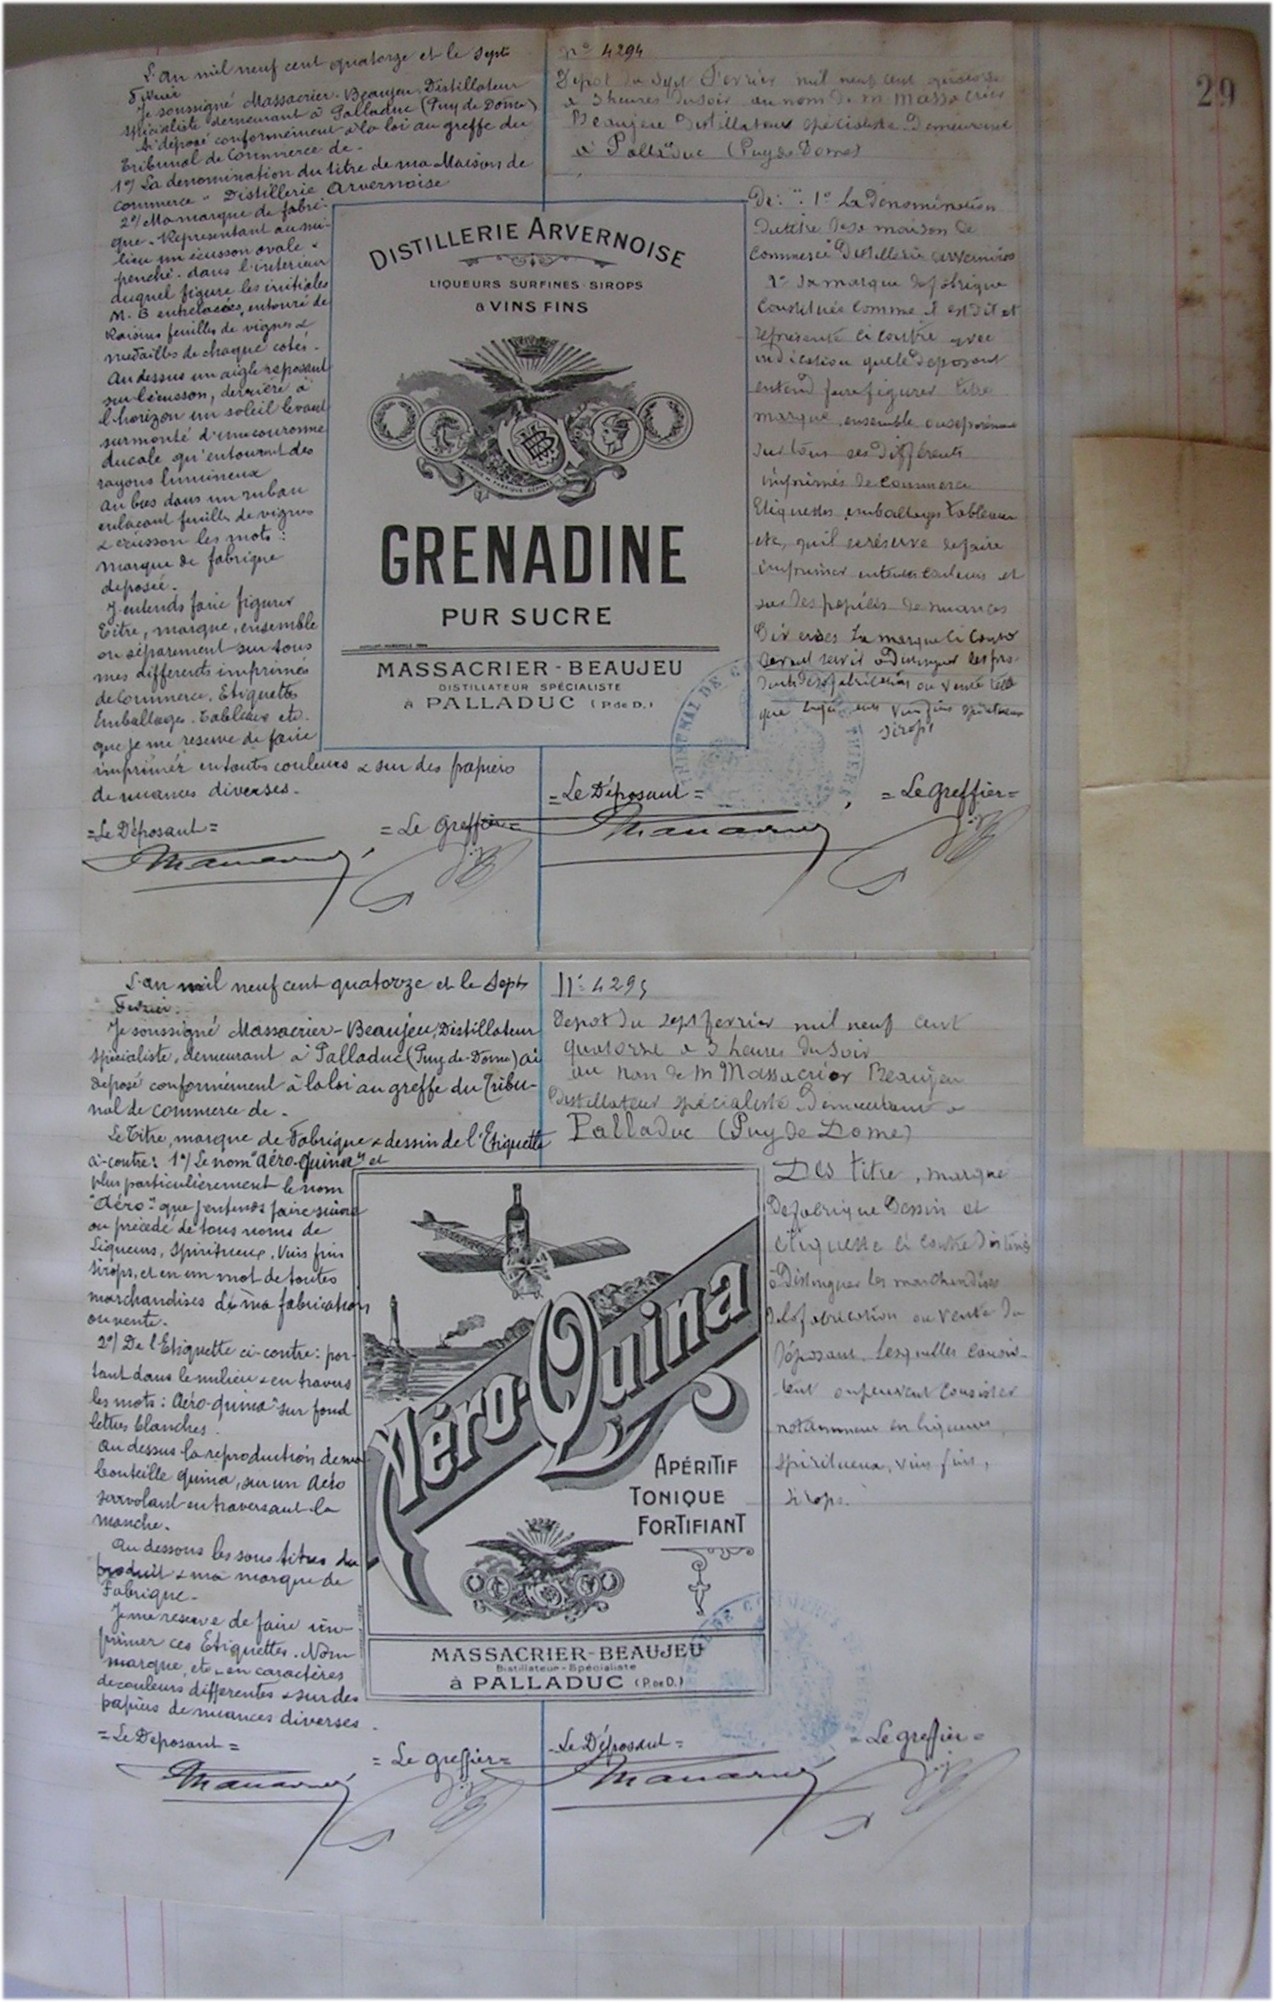 29
L'an mil neuf cent quatorze et le sept
Février
Je soussigné Massacrier-Beaujeu, Distillateur
spécialiste demeurant à Palladuc (Puy de Dôme)
ai déposé conformément à la loi au greffe du
Tribunal de Commerce de -
1o/ La dénomination du titre de ma Maison de
commerce " Distillerie Arvernoise
2o/ Ma marque de fabri-
que - Représentant au mi-
lieu un écusson ovale &
penché - dans l'intérieur
duquel figure les initiales
M. B entrelacées, entouré de
Raisins feuilles de vignes &
médailles de chaque côtés -
Au dessus un aigle reposant
sur l'écusson, derrière à
l'horizon un soleil levant
surmonté d'une couronne
ducale qu'entourent des
rayons lumineux
au bas dans un ruban
enlaçant feuilles de vignes
& écusson les mots :
marque de fabrique
déposée.
J'entends faire figurer
titre, marque, ensemble
ou séparément sur tous
mes différents imprimés
de Commerce. Etiquettes
Emballages. Tableaux etc.
que je me réserve de faire
imprimer en toutes couleurs & sur des papiers
de nuances diverses.-
= Le Déposant =
= Le Greffier =
No 4294
Dépot du sept Février mil neuf cent quatorze
à 3 heures du soir au nom de M. Massacrier
Beaujeu Distillateur spécialiste Demeurant
à Palladuc (Puy de Dome)
De : 1o La dénomination
du titre de sa maison de
commerce Distillerie arvernoise
2o Sa marque de fabrique
Constituée comme il est dit et
représenté ci contre avec
indication que le Deposant
entend faire figurer titre
marque, ensemble ou séparément
sur tous ses différents
imprimés de commerce
Etiquettes, emballages Tableaux
etc, qu'il se réserve de faire
imprimer en toutes couleurs et
sur des papiers de nuances
Diverses La marque ci contre
devant servir à Distinguer les pro-
duits de sa fabrication ou vente
que vins fins spiritueux
sirops
= Le Déposant =
= Le Greffier =
DISTILLERIE ARVERNOISE
LIQUEURS SURFINES - SIROPS
& VINS FINS
MB
GRENADINE
PUR SUCRE
MASSACRIER - BEAUJEU
DISTILLATEUR SPÉCIALISTE
à PALLADUC (P. de D.)
L'an mil neuf cent quatorze et le sept
Février.
Je soussigné Massacrier-Beaujeu, Distillateur
spécialiste, demeurant à Palladuc (Puy-de-Dome) ai
déposé conformément à la loi au greffe du Tribu-
nal de commerce de -
Le Titre, marque de Fabrique & dessin de l'Etiquette
ci-contre: 1o/ Le nom "Aéro-Quina" et
plus particulièrement le nom
"Aéro" que j'entends faire suivre
ou précédé de tous noms de
Liqueurs, Spiritueux, Vins fins
Sirops, et en un mot de toutes
marchandises de ma fabrication
ou vente.
2o/ De l'Etiquette ci-contre : por-
tant dans le milieu & en travers
les mots : Aéro-quina" sur fond
lettres blanches.
Au dessus la reproduction de ma
bouteille quina, sur un Aéro
survolant en traversant la
manche.
Au dessous les sous titres du
produit & ma marque de
Fabrique.-
Je me réserve de faire im-
primer ces Etiquettes. Nom
marque, etc. en caractères
de couleurs différentes & sur des
papiers de nuances diverses -
= Le Déposant =
= Le greffier =
No 4295
Depot du sept février mil neuf cent
quatorze à 3 heures du soir
au nom de M Massacrier Beaujeu
Distillateur spécialiste Demeurant à
Palladuc (Puy de Dome)
Des titre, marque
de fabrique Dessin et
étiquette ci contre Destinés
à Distinguer les marchandises
de la fabrication ou vente du
Déposant. Lesquelles consis-
tent ou peuvent consister
notamment en liqueurs,
spiritueux, vins fins,
sirops.
- Le Déposant =
= Le greffier =
Aéro-Quina
APÉRITIF
TONIQUE
FORTIFIANT
MASSACRIER-BEAUJEU
Distillateur-Spécialiste
à PALLADUC (P. DE D.)